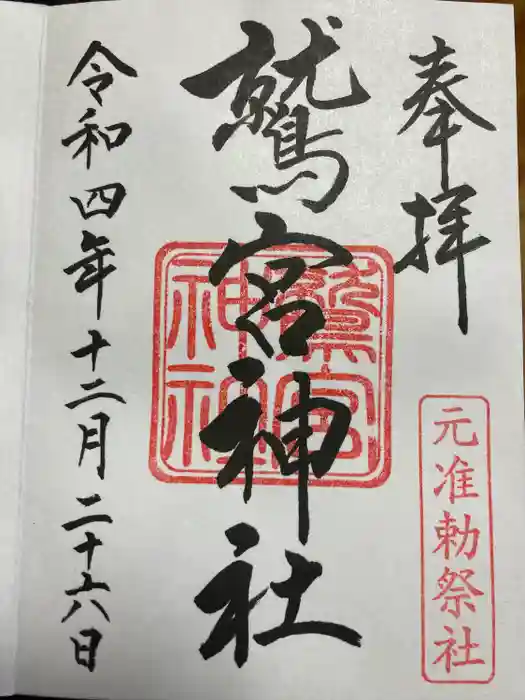 奉拝
元准勅祭社
鷲宮神社
鷲宮
神社
令和四年十二月二十六日